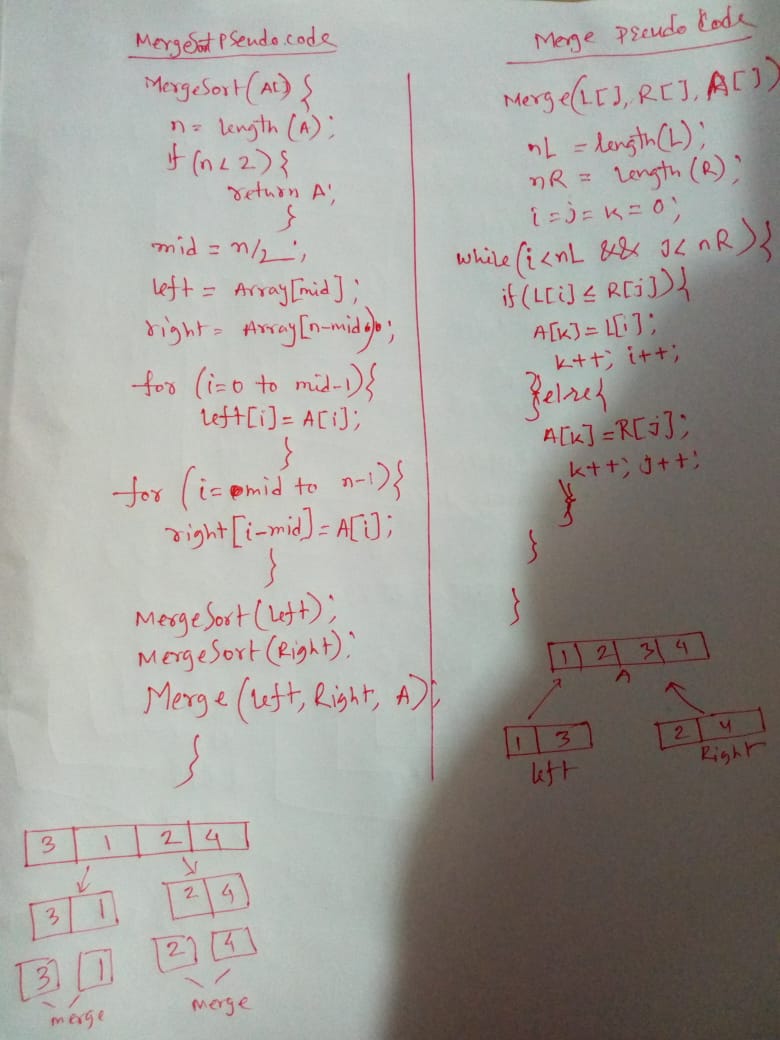 MergeSort Pseudo code
MergeSort(A[]) {
n = length (A);
if (n < 2) {
return A;
}
mid = n/2 ;
left = Array[mid] ;
right = Array[n-mid] ;
for (i=0 to mid-1){
left[i] = A[i];
}
for (i= mid to n-1){
right[i-mid] = A[i];
}
MergeSort (left);
MergeSort (Right);
Merge (left, Right, A);
}
3 1 2 4
3 1 2 4
3 1 2 4
merge merge
Merge Pseudo Code
Merge(L[], R[], A[])
nL = length(L);
nR = length (R);
i = j = k = 0;
while (i < nL && j < nR) {
if (L[i] ≤ R[j]) {
A[k] = L[i];
k++; i++;
} else {
A[k] = R[j];
k++; j++;
}
}
}
1 2 3 4
A
1 3 2 4
left Right